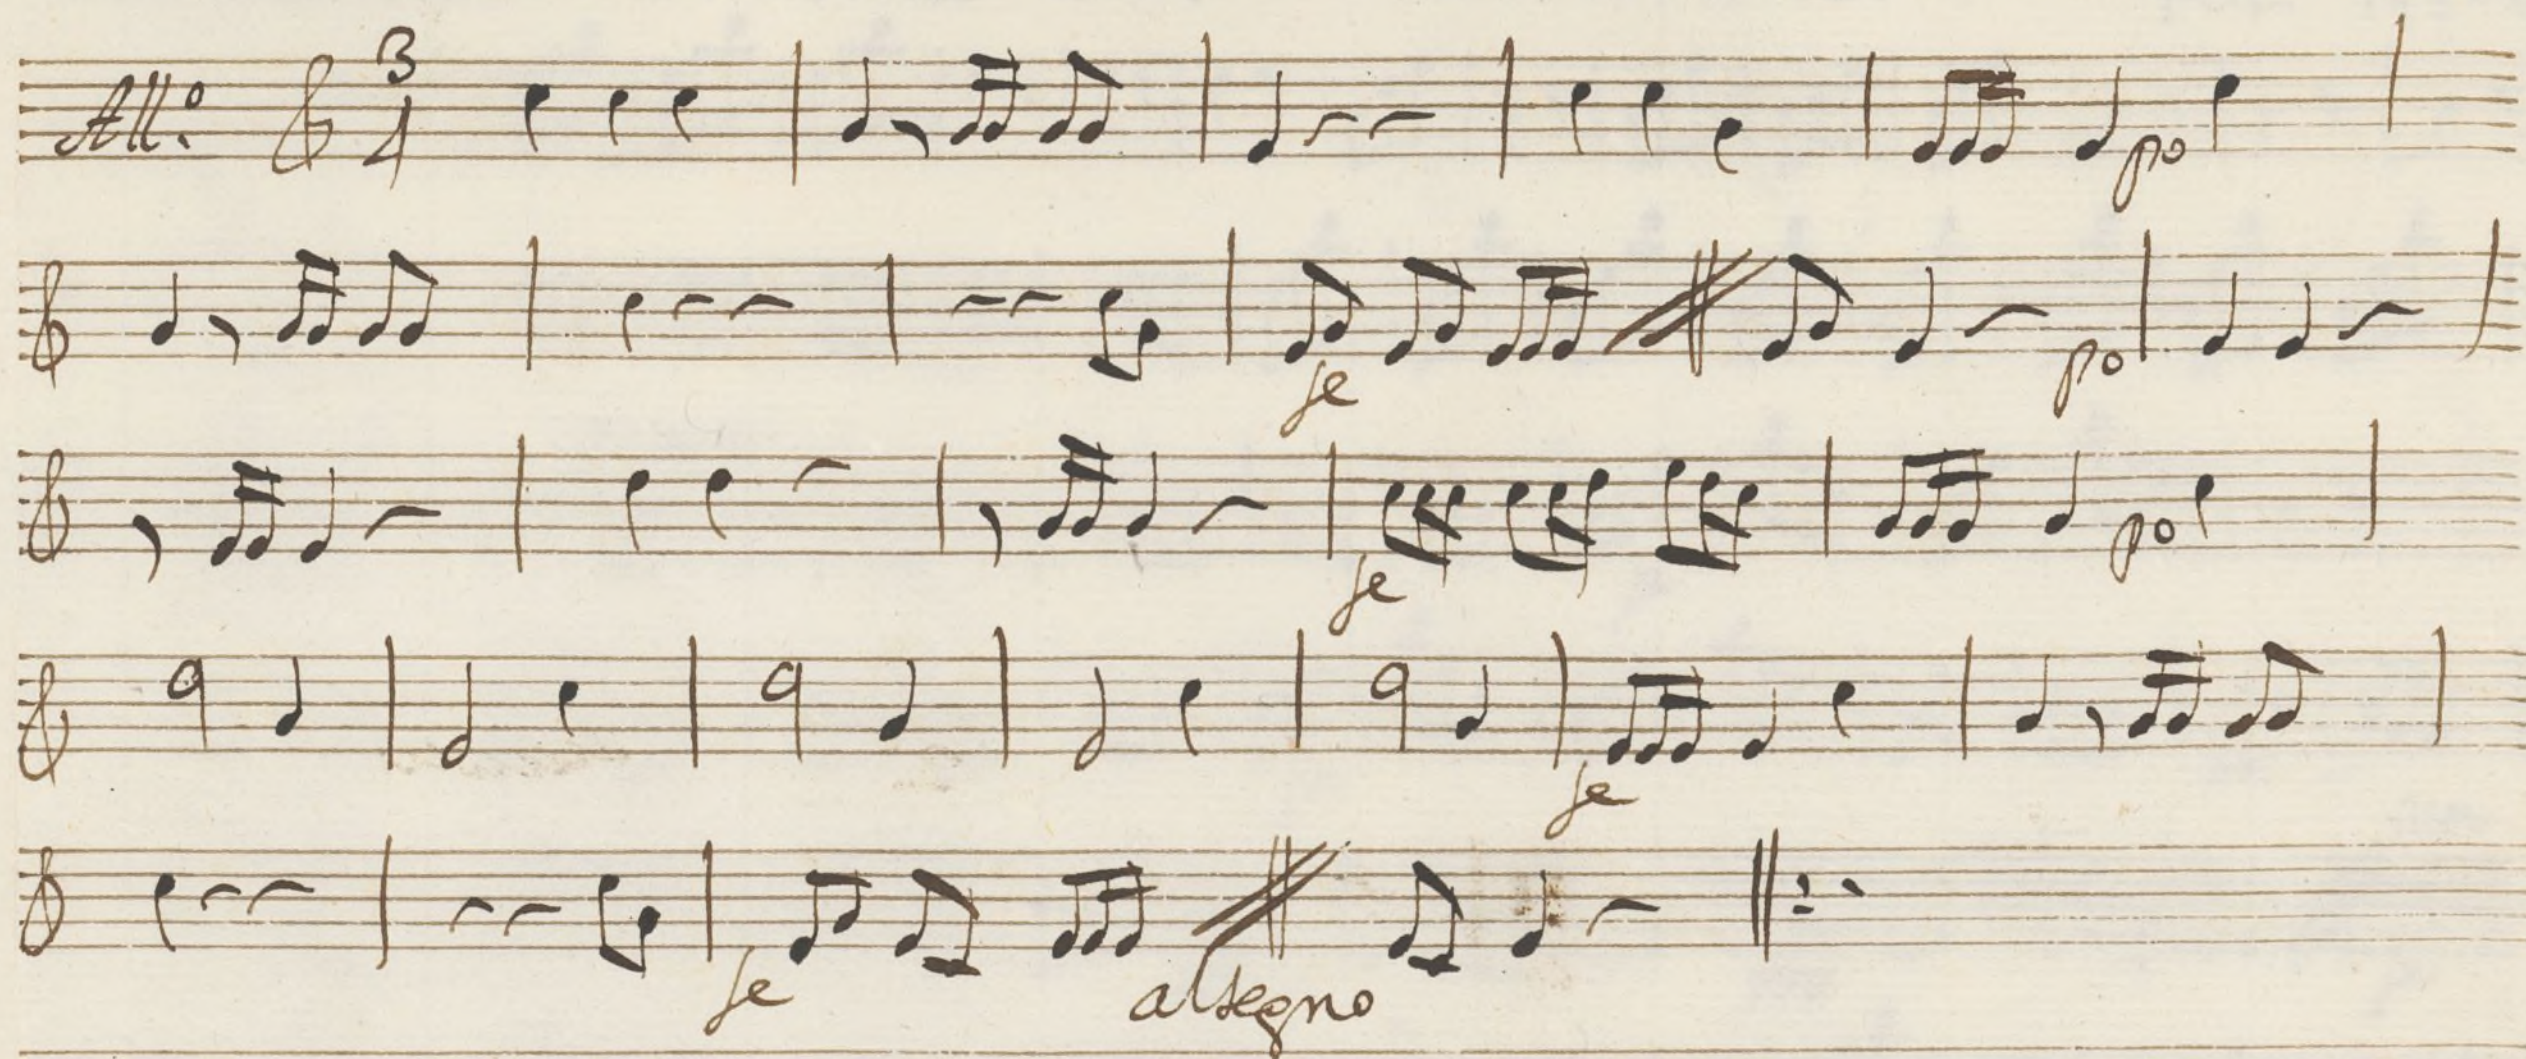 All.o 3
4 po
fe po
fe po
fe
fe al segno